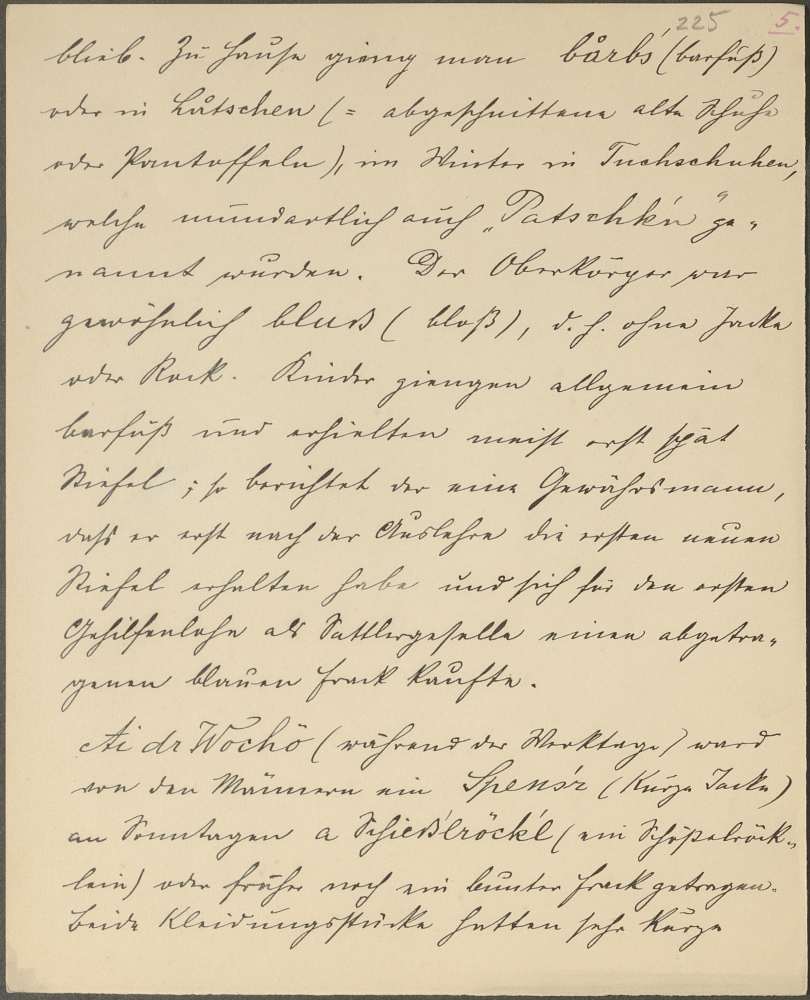 225 5.
blieb. Zu Hause gieng man bårbs (barfuß)
oder in Låtschen (= abgeschnittene alte Schuhe
oder Pantoffeln), im Winter in Tuchschuhen,
welche mundartlich auch „Patschk'n“ ge-
nannt wurden. Der Oberkörper war
gewöhnlich bluß (bloß), d. h. ohne Jacke
oder Rock. Kinder giengen allgemein
barfuß und erhielten meist erst spät
Stiefel; so berichtet der eine Gewährsmann,
dass er erst nach der Auslehre die ersten neuen
Stiefel erhalten habe und sich für den ersten
Gehilfenlohn als Sattlergeselle einen abgetra-
genen blauen Frack kaufte.
Ai dr Wochö (während der Werktage) ward
von den Männern ein Spens'r (kurze Jacke)
an Sonntagen a Schieß'lröck'l (ein Schößelröck-
lein) oder früher noch ein bunter Frack getragen.
Beide Kleidungsstücke hatten sehr kurze